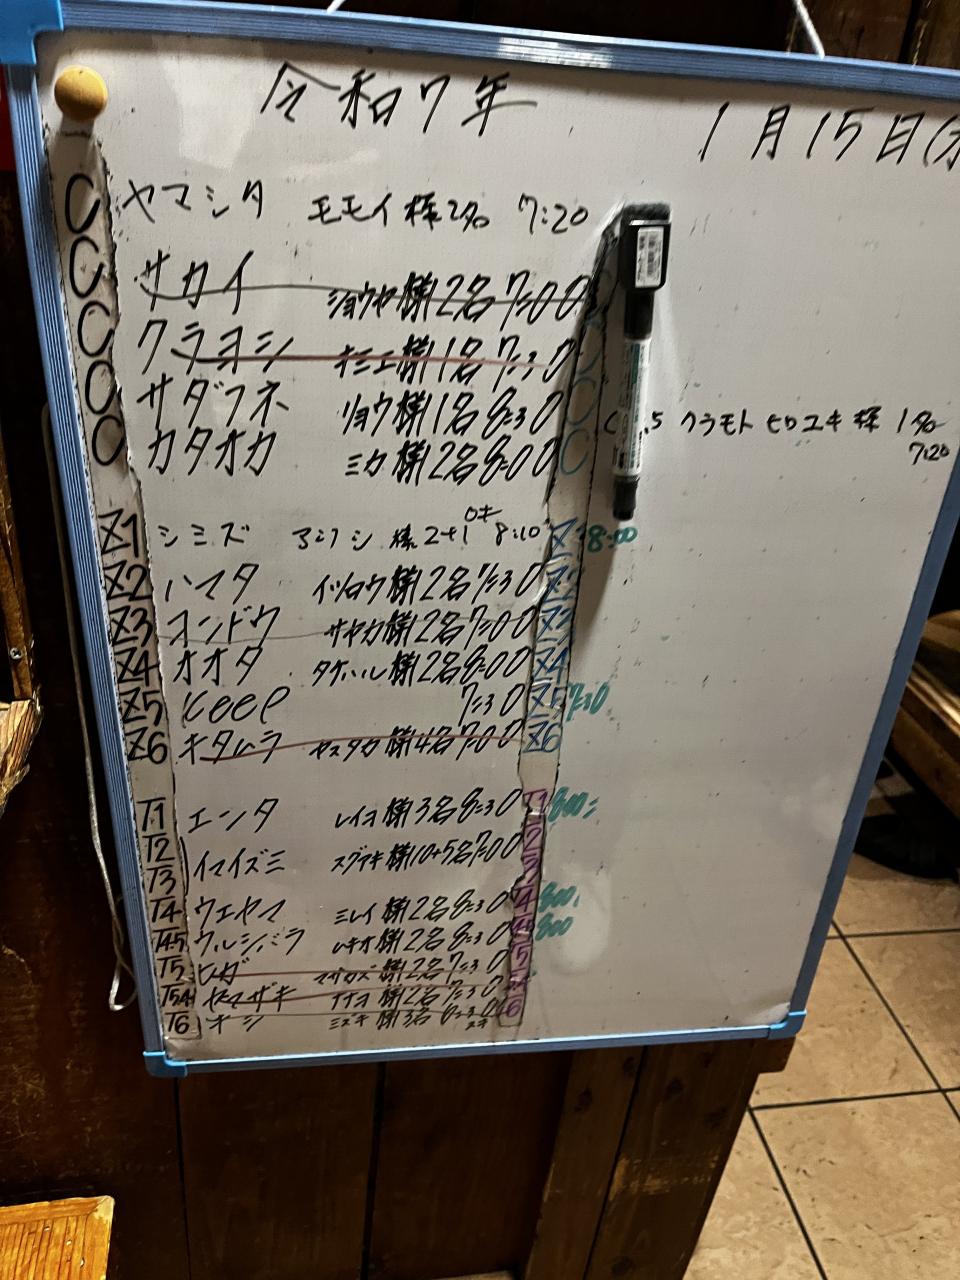 令和7年 1月15日(水
C ヤマシタ モモイ様2名 7:20
C サカイ ショウヤ様2名 7:00
C クラヨシ キミエ様1名 7:30
C サダフネ リョウ様1名 8:30 C
C カタオカ ミカ様2名 8:00 C
.5 クラモト ヒロユキ様 1名
7:20
Z1 シミズ 様 2+1 8:10 Z 8:00
Z2 ハマタ イツロウ様2名 7:30 Z2
Z3 コンドウ サヤカ様2名 7:00 Z3
Z4 オオタ タケハル様2名 8:00 Z4
Z5 Keep 7:30 Z5 7:30
Z6 キタムラ ヤスタカ様4名 7:00 Z6
T1 エンタ レイヨ様3名 8:30 T1 800
T2
T3 イマイズミ 様10+5名 7:00
T4 ウエヤマ ミレイ様2名 8:30 4 800
T4.5 ウルシバラ 様2名 8:30 800
T5 ヒガ マサカズ様2名 7:30 5
T5A ヤマザキ 様2名 7:30
T6 オシ ミズキ様3名 6